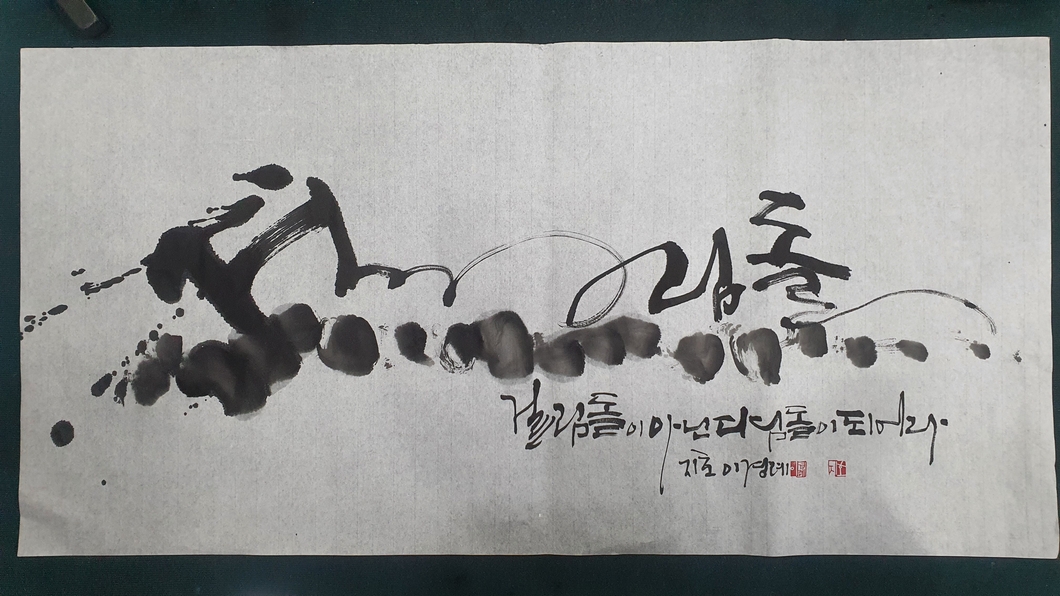 걸림돌이 아닌 디딤돌이 되어라.
지호 이경례